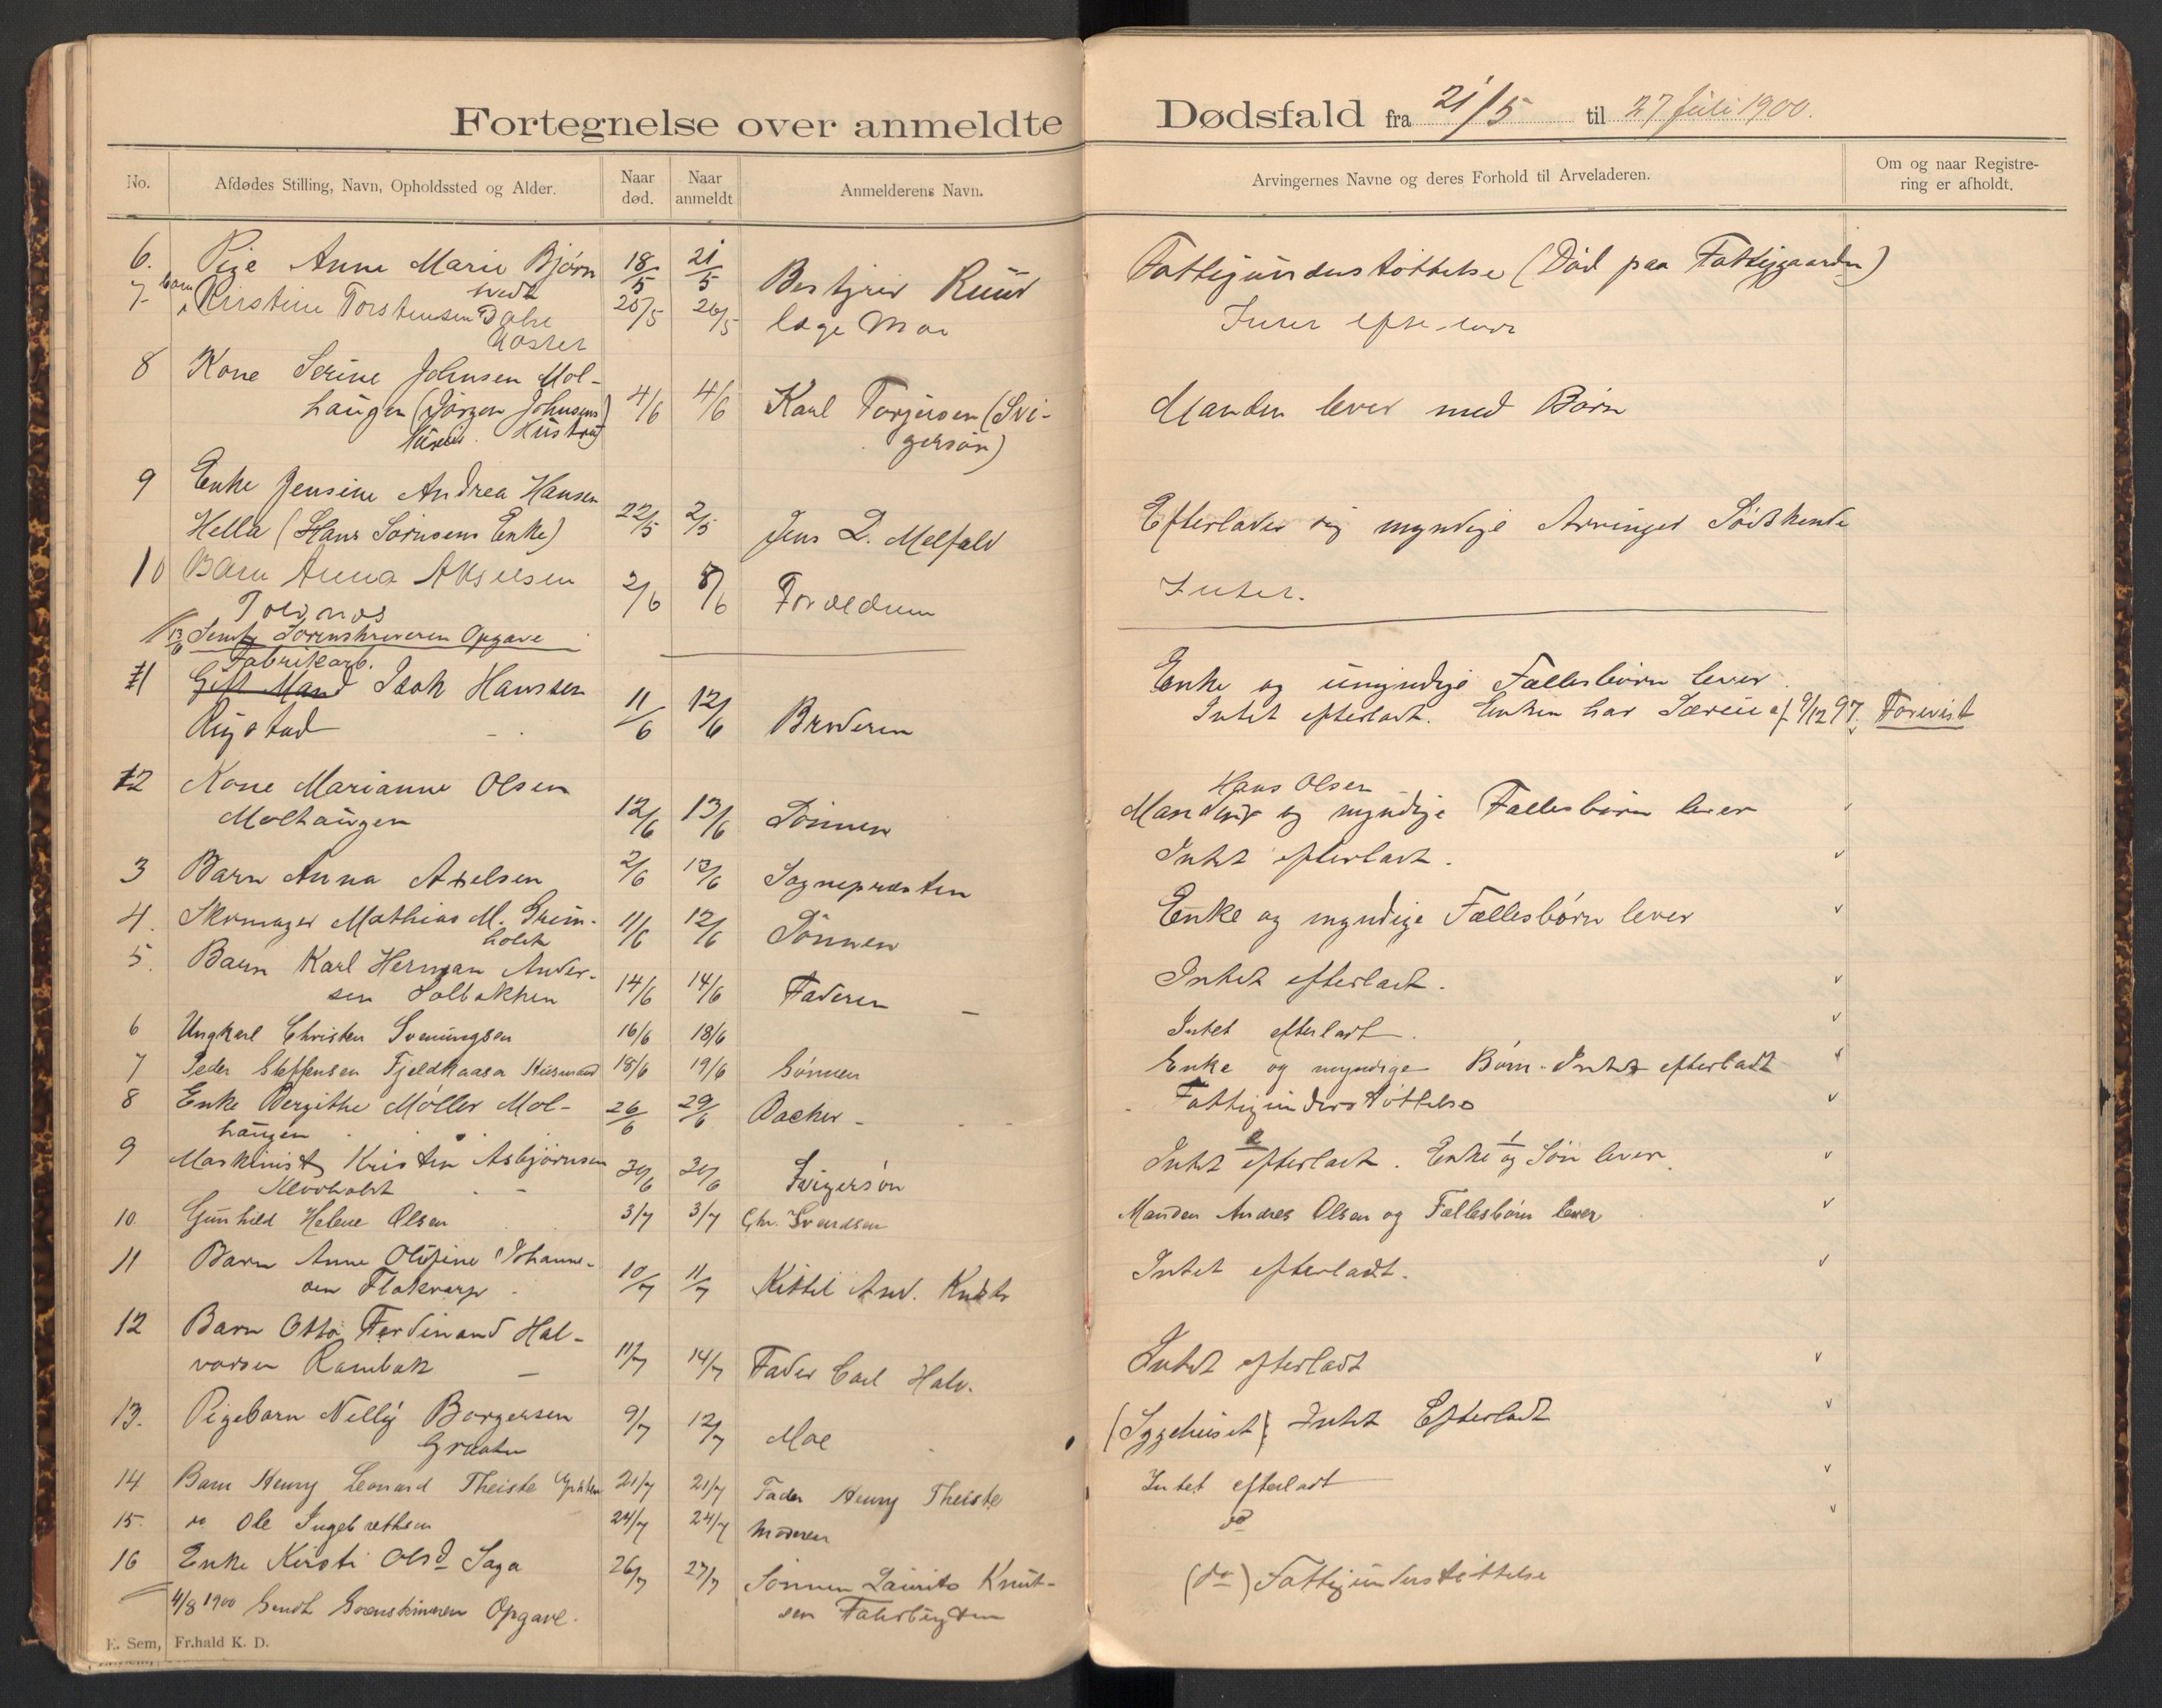 Fortegnelse over anmeldte Dødsfald fra 21/5 til 27 Juli 1900.
No. Afdødes Stilling, Navn, Opholdssted og Alder. Naar død. Naar anmeldt Anmelderens Navn. Arvingernes Navne og deres Forhold til Arveladeren. Om og naar Registrering er afholdt.
6. Pige Anne Marie Bjørn 18/5 21/5 Bestyrer Ruud Fattigunderstøttelse (Død paa Fattiggaarden)
tvedt
7 barn Kirstine Torstensen 25/5 26/5 læge Moe
8 Kone Serine Johnsen Mol-
haugen (Jørgen Johnsens 4/6 4/6 Karl Torjersen (Svi- Manden lever med Børn
Hustru) gersøn)
9 Enke Jensine Andrea Hansen
Hella (Hans Sørnsens Enke) 22/5 2/5 Jens L. Melfald Efterlader sig myndige Arvinger Södskende
10 Barn Anna Akselsen 2/6 8/6 Forældrene Intet.
13/6 Sendt Sorenskriveren Opgave
Fabrikarb.
11 Gift Mand Isak Hanssen 11/6 12/6 Broderen Enke og umyndige Fællesbørn lever
Rugstad Intet efterladt. Enken har Særeie af 9/12 97. Forevist
12 Kone Marianne Olsen Hans Olsen
Molhaugen 12/6 13/6 Sønnen Manden og myndige Fællesbørn lever
3 Barn Anna Axelsen 2/6 12/6 Sognepræsten Intet efterladt.
4. Skomager Mathias M. Grim- 11/6 12/6 Sønnen Enke og myndige Fællesbørn lever
holt
5. Barn Karl Herman Ander-
sen Solbakken 14/6 14/6 Faderen Intet efterladt.
6 Ungkarl Christen Svenungsen 16/6 18/6 Intet efterladt.
7 Peder Steffensen Fjeldkaasa Husmand 18/6 19/6 Sønnen Enke og myndige Børn. Intet efterladt
8 Enke Bergithe Møller Mol- 26/6 29/6 Backer Fattigunderstøttelse
haugen
9 Maskinist Kristen Asbjørnsen 30/6 30/6 Svigersøn Intet efterladt. Enke og Søn lever
10. Gunhild Helene Olsen 3/7 3/7 Chr. Svendsen Manden Andres Olsen og Fællesbørn lever
11 Barn Anne Olufine Johanne-
sen Flakvarp 10/7 11/7 Kittil And. Intet efterladt.
12 Barn Otto Ferdinand Hal-
vorsen Rambæk 11/7 14/7 Fader Carl Halv. Intet efterladt
13. Pigebarn Nelly Borgersen 9/7 12/7 Moe (Sygehuset) Intet Efterladt
Graaten
14 Barn Henry Leonard Theiste 21/7 21/7 Fader Henry Theiste Intet efterladt
15. do Ole Ingebrethsen 24/7 24/7 Moderen do
16 Enke Kirsti Olsd Saga 26/7 27/7 Sønnen Laurits Knut- (do) Fattigunderstøttelse
sen
4/8 1900 Sendt Sorenskriveren Opgave.
E. Sem, Fr.hald K. D.